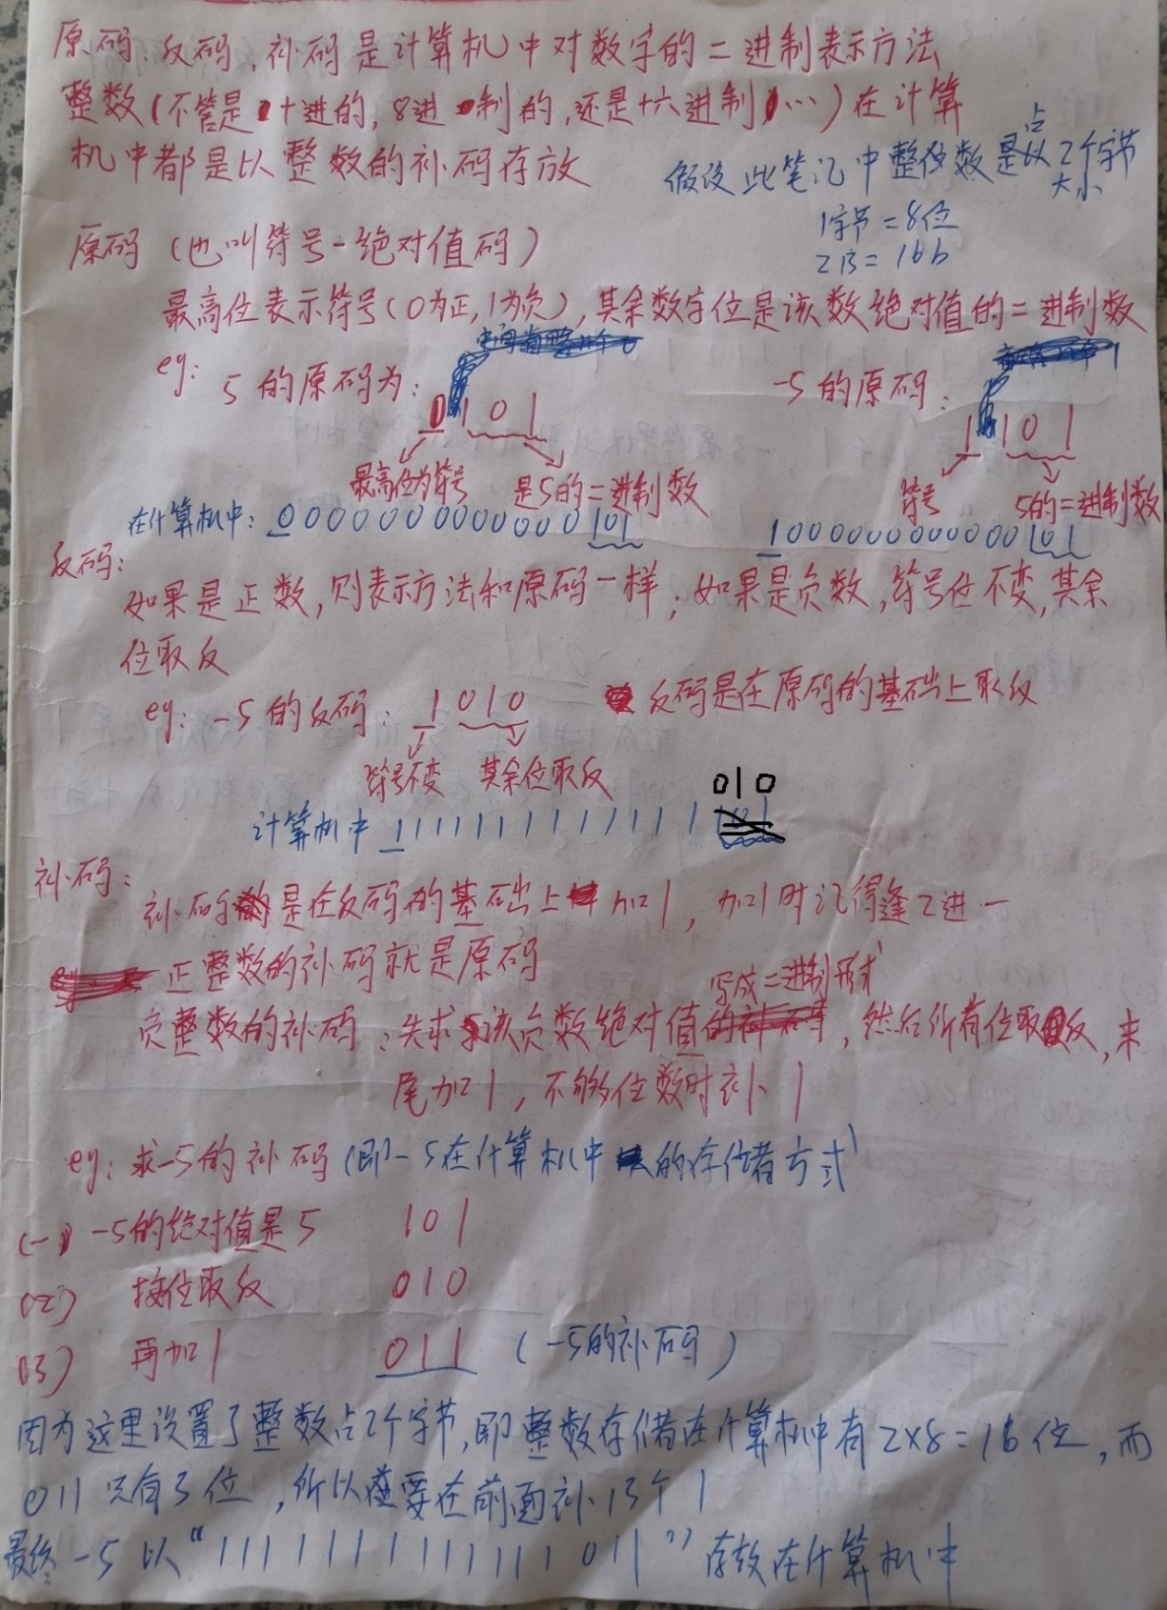 原码、反码、补码是计算机中对数字的二进制表示方法
整数(不管是十进的,8进制的,还是十六进制,…)在计算
机中都是以整数的补码存放
假设此笔记中整数是占以2个字节大小
1字节=8位
2B=16b
原码(也叫符号-绝对值码)
最高位表示符号(0为正,1为负),其余数字位是该数绝对值的二进制数
eg: 5的原码为: 0 1 0 1
-5的原码: 1 1 0 1
最高位为符号 是5的二进制数
符号 5的二进制数
在计算机中: 0000000000000101
1000000000000101
反码:
如果是正数,则表示方法和原码一样;如果是负数,符号位不变,其余
位取反
eg: -5的反码: 1 010 反码是在原码的基础上取反
符号不变 其余位取反
010
计算机中 1111111111111
补码:
补码是在反码的基础上加1, 加1时记得逢2进一
正整数的补码就是原码
写成二进制形式
负整数的补码:先求该负数绝对值的,然后所有位取反,末
尾加1,不够位数时补1
eg: 求-5的补码(即-5在计算机中的存储方式)
(一) -5的绝对值是5 101
(2) 按位取反 010
(3) 再加1 011 (-5的补码)
因为这里设置了整数占2个字节,即整数存储在计算机中有2×8=16位,而
011只有3位,所以要在前面补13个1
最终-5以“1111111111111011”存放在计算机中